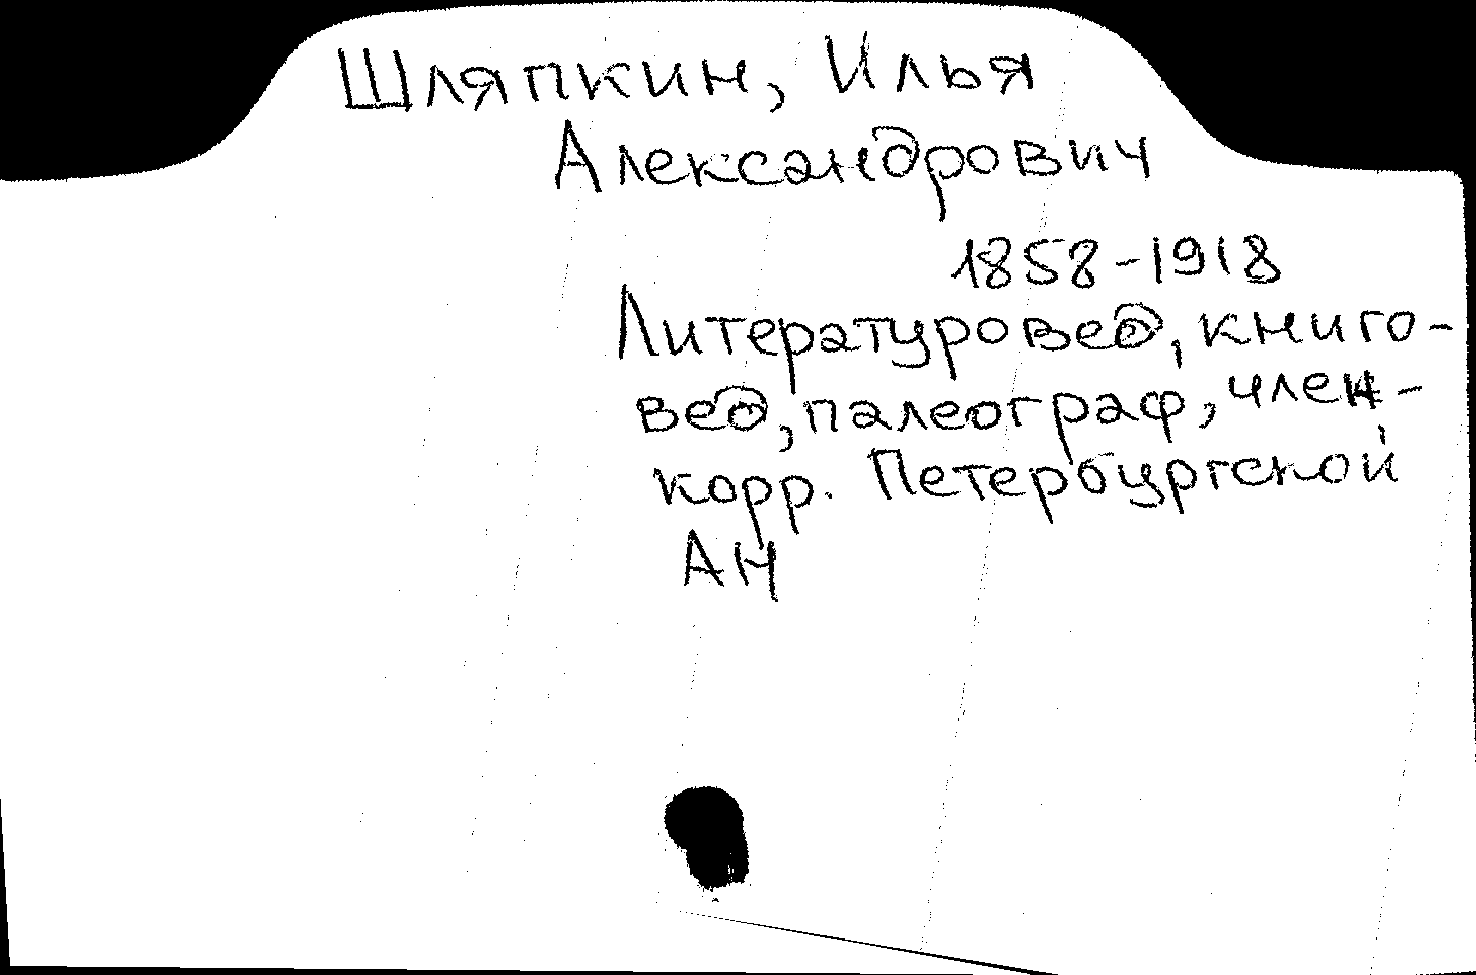 Шляпкин, Илья
Александрович
1858-1918
Литературовед, книго-
вед, палеограф, член-
корр. Петербургской
АН